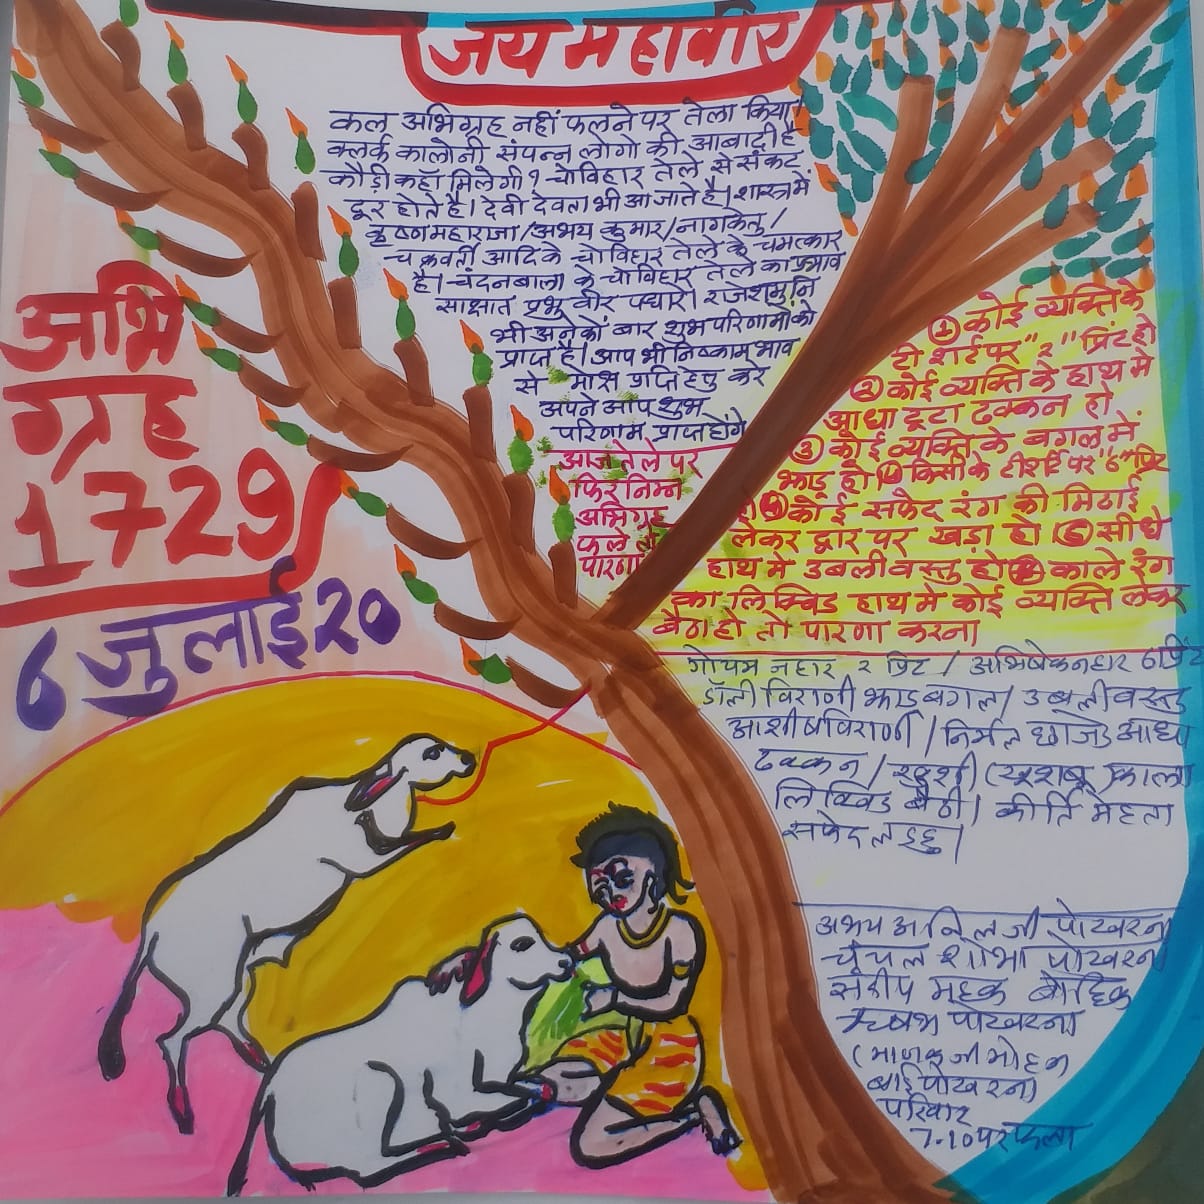 जय महावीर
कल अभिग्रह नहीं फलने पर तेला किया
क्लर्क कालोनी संपन्न लोगो की आबादी है
कौड़ी कहाँ मिलेगी? चोविहार तेले से संकट
दूर होते है। देवी देवता भी आ जाते है। शास्त्र में
कृष्ण महाराजा/अभय कुमार/नागकेतु/
चक्रवर्ती आदि के चोविहार तेले के चमत्कार
है। चंदनबाला के चोविहार तेले का प्रभाव
साक्षात प्रभु वीर पधारे। राजेशमुनि
भी अनेकों बार शुभ परिणामों को
प्राप्त है। आप भी निष्काम भाव
से मोक्ष प्राप्ति हेतु करे
अपने आप शुभ
परिणाम प्राप्त होंगे
अभि
ग्रह
1729
6 जुलाई 20
आज तेले पर
फिर निम्न
अभिग्रह
फले तो
पारणा
① कोई व्यक्ति के
टी शर्ट पर "२" प्रिंट हो
② कोई व्यक्ति के हाथ मे
आधा टूटा ढक्कन हो
③ कोई व्यक्ति के बगल में
झाडू हो ④ किसी के टी शर्ट पर "6" प्रिंट
हो ⑤ कोई सफेद रंग की मिठाई
लेकर द्वार पर खड़ा हो ⑥ सीधे
हाथ मे उबली वस्तु हो ⑦ काले रंग
का लिक्विड हाथ मे कोई व्यक्ति लेकर
बैठा हो तो पारणा करना
गोयम नहार २ प्रिंट / अभिषेक नहार ६ प्रिंट
डॉली विराणी झाडू बगल / उबली वस्तु
आशीष विराणी / निर्मल छाजेड आधा
ढक्कन / खुशी (खुशबू) काला
लिक्विड बैठी। कीर्ति मेहता
सफेद लड्डु।
अभय अनिल जी पोखरना
चंचल शोभा पोखरना
संदीप महक बोद्धिक
ऋषभ पोखरना
(माणक जी मोहन
बाई पोखरना)
परिवार
7-10 पर फला